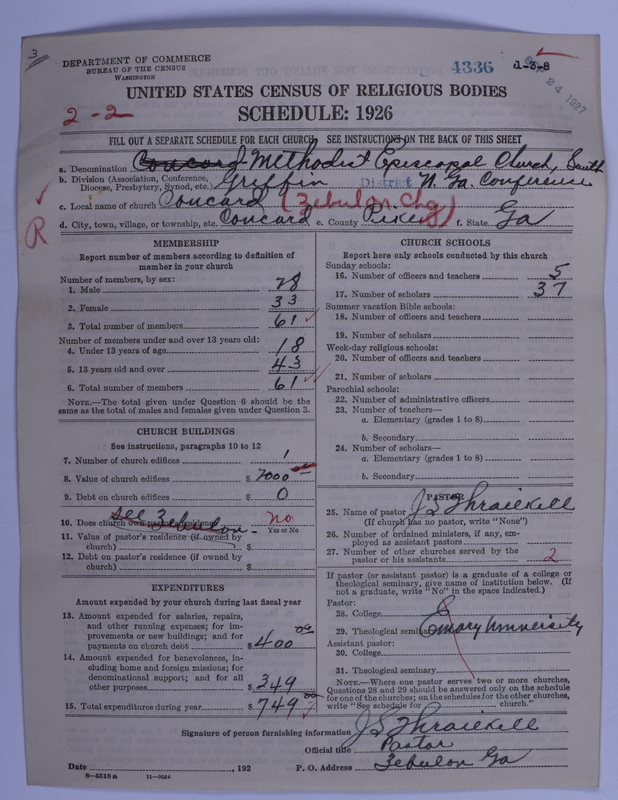 3
DEPARTMENT OF COMMERCE
BUREAU OF THE CENSUS
WASHINGTON
4336
1-3-8
24 1927
UNITED STATES CENSUS OF RELIGIOUS BODIES
2-2
SCHEDULE: 1926
FILL OUT A SEPARATE SCHEDULE FOR EACH CHURCH. SEE INSTRUCTIONS ON THE BACK OF THIS SHEET
a. Denomination Concord Methodist Episcopal Church, South
b. Division (Association, Conference, Diocese, Presbytery, Synod, etc.) Griffin District N. Ga. Conference
c. Local name of church Concord (Zebulon Chg)
R
d. City, town, village, or township, etc. Concord e. County Pike f. State Ga
MEMBERSHIP
Report number of members according to definition of
member in your church
Number of members, by sex:
1. Male 28
2. Female 33
3. Total number of members 61
Number of members under and over 13 years old:
4. Under 13 years of age 18
5. 13 years old and over 43
6. Total number of members 61
NOTE.—The total given under Question 6 should be the
same as the total of males and females given under Question 3.
CHURCH BUILDINGS
See instructions, paragraphs 10 to 12
7. Number of church edifices 1
8. Value of church edifices $ 7000
9. Debt on church edifices $ 0
See Zebulon
10. Does church own pastor's residence No
Yes or No
11. Value of pastor's residence (if owned by
church) $
12. Debt on pastor's residence (if owned by
church) $
EXPENDITURES
Amount expended by your church during last fiscal year
13. Amount expended for salaries, repairs,
and other running expenses; for im-
provements or new buildings; and for
payments on church debt $ 400 00
14. Amount expended for benevolences, in-
cluding home and foreign missions; for
denominational support; and for all
other purposes $ 349
15. Total expenditures during year $ 749 00
CHURCH SCHOOLS
Report here only schools conducted by this church
Sunday schools:
16. Number of officers and teachers 5
17. Number of scholars 37
Summer vacation Bible schools:
18. Number of officers and teachers
19. Number of scholars
Week-day religious schools:
20. Number of officers and teachers
21. Number of scholars
Parochial schools:
22. Number of administrative officers
23. Number of teachers—
a. Elementary (grades 1 to 8)
b. Secondary
24. Number of scholars—
a. Elementary (grades 1 to 8)
b. Secondary
PASTOR
25. Name of pastor J S Thrailkill
(If church has no pastor, write "None")
26. Number of ordained ministers, if any, em-
ployed as assistant pastors
27. Number of other churches served by the
pastor or his assistants 2
If pastor (or assistant pastor) is a graduate of a college or
theological seminary, give name of institution below. (If
not a graduate, write "No" in the space indicated.)
Pastor:
28. College
29. Theological seminary Emory University
Assistant pastor:
30. College
31. Theological seminary
NOTE.—Where one pastor serves two or more churches,
Questions 28 and 29 should be answered only on the schedule
for one of the churches; on the schedules for the other churches,
write "See schedule for church."
Signature of person furnishing information J S Thrailkill
Official title Pastor
Date , 192 P. O. Address Zebulon Ga
8—5518a 11—9024